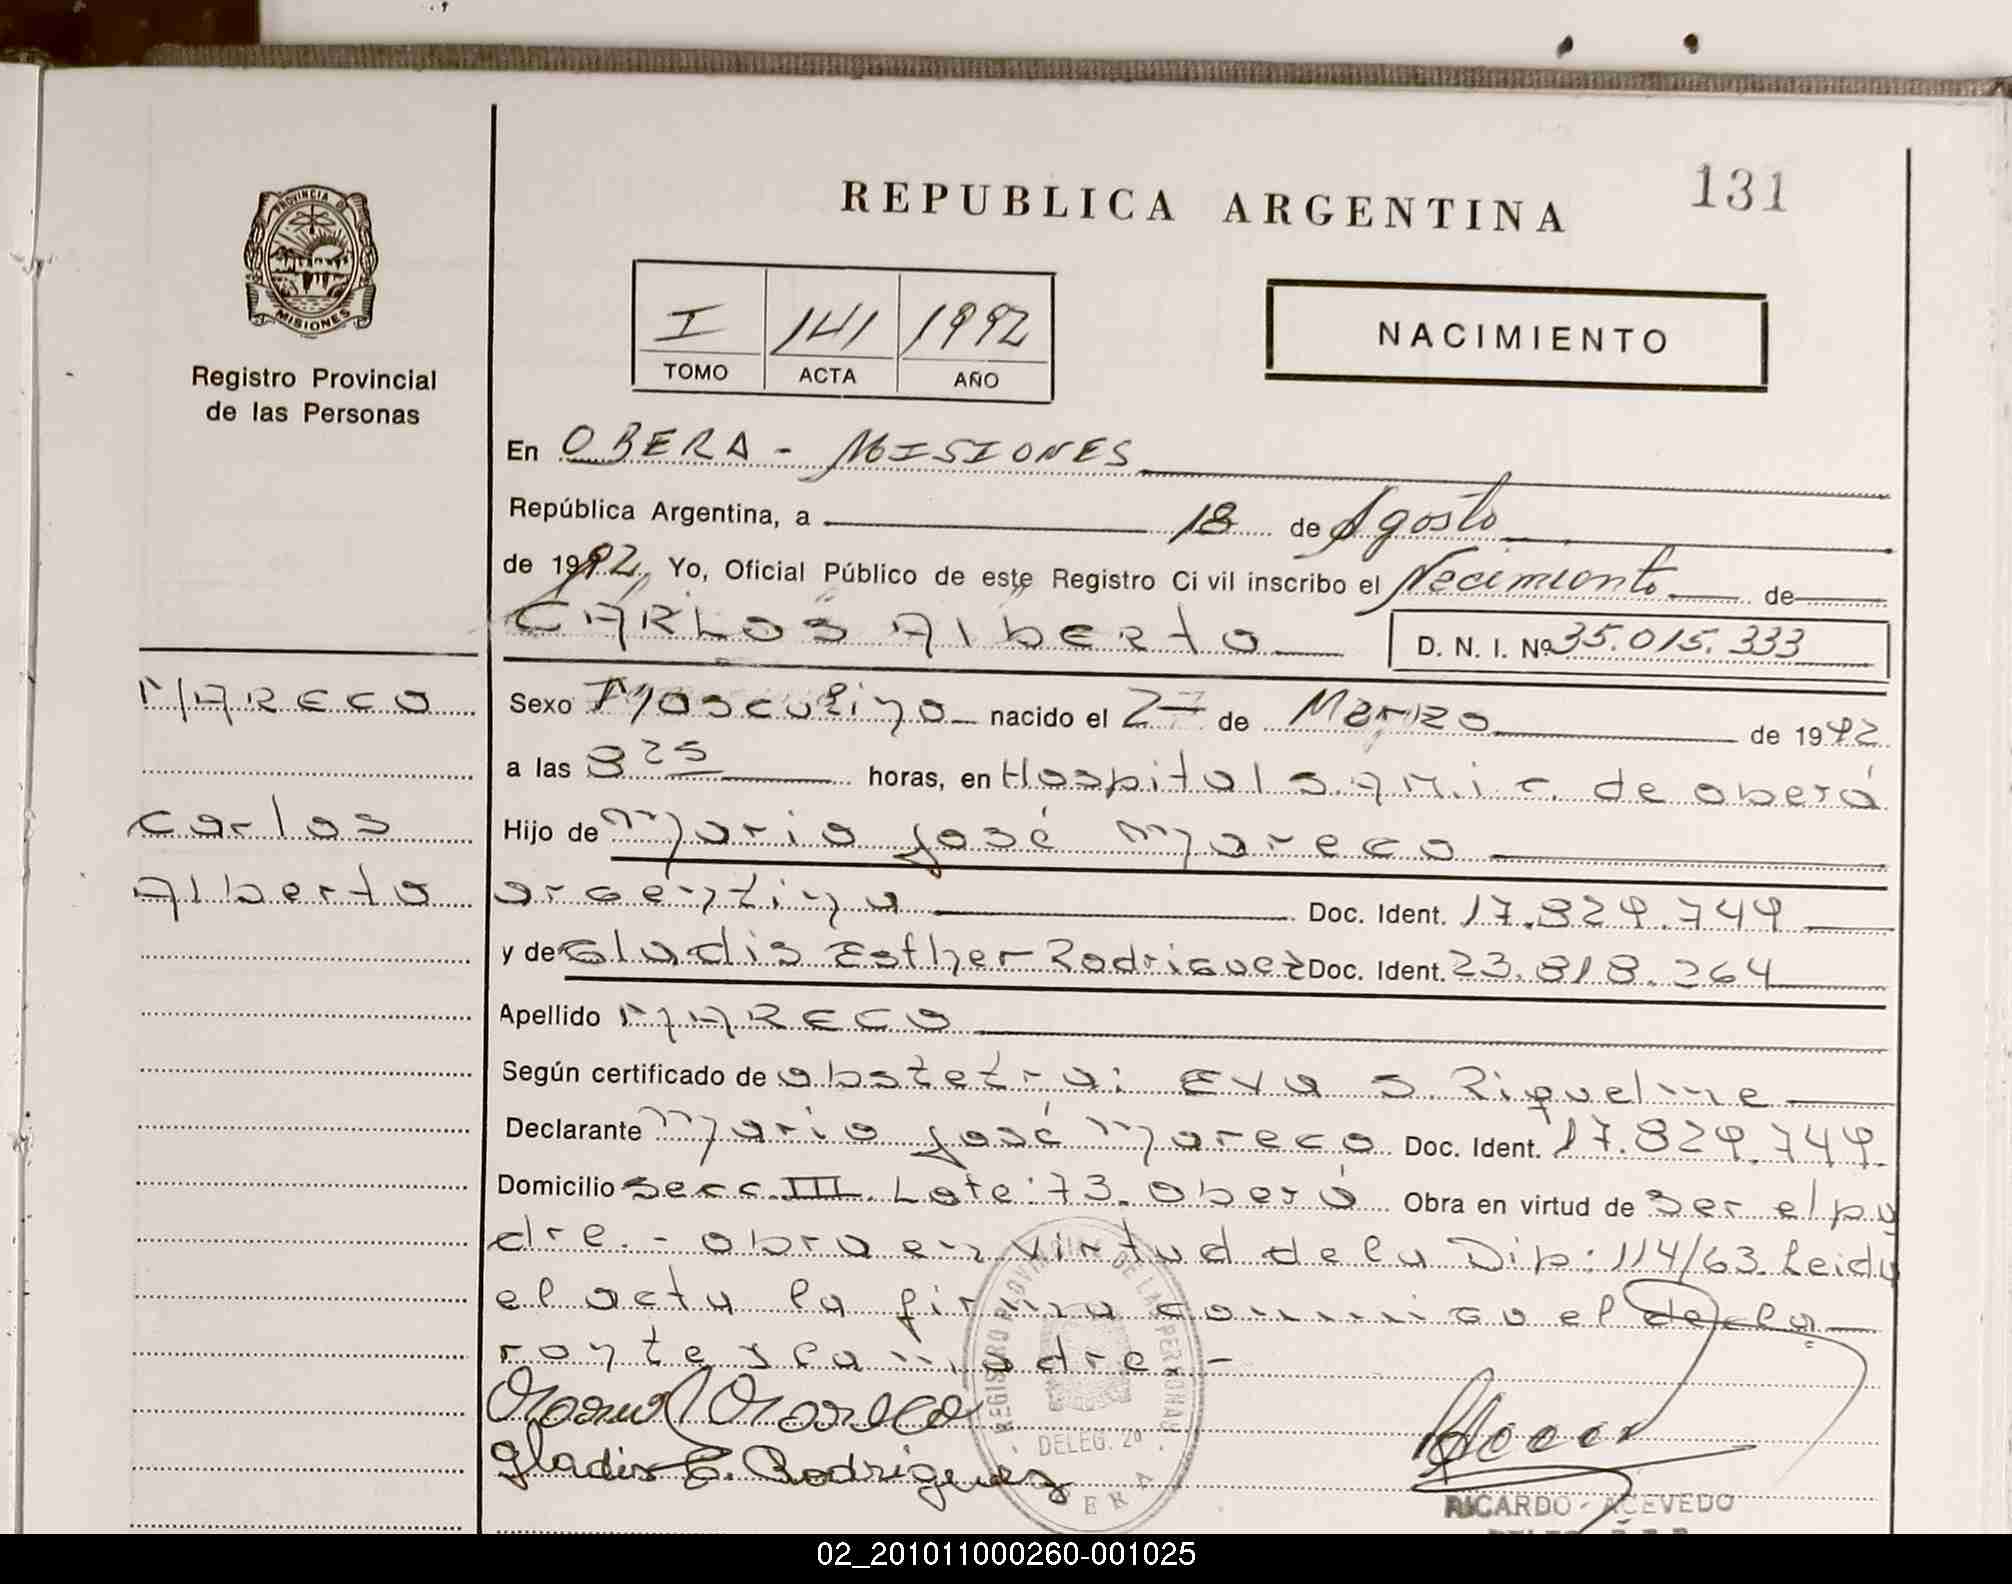 131
REPUBLICA ARGENTINA
PROVINCIA D
MISIONES
Registro Provincial
de las Personas
I 141 1992
TOMO ACTA AÑO
NACIMIENTO
En OBERA - MISIONES
República Argentina, a 18 de Agosto
de 1992 Yo, Oficial Público de este Registro Ci vil inscribo el Nacimiento de
CARLOS Alberto D. N. I. Nº 35.015.333
MARECO
Carlos
Alberto
Sexo Masculino nacido el 27 de Marzo de 1992
a las 8 25 horas, en Hospital S.A.M.i c. de oberá
Hijo de Mario José Mareco
argentina Doc. Ident. 17.829.749
y de Gladis Esther Rodriguez Doc. Ident. 23.818.264
Apellido MARECO
Según certificado de obstetra: Eva S. Riquelme
Declarante Mario José Mareco Doc. Ident. 17.829.749
Domicilio Secc. III. Lote: 73. oberá Obra en virtud de ser el pa
dre. - obra en virtud de la Dip: 114/63. Leida
el acta la firma conmigo el decla
rante y la madre. -
Mareco
Gladis E. Rodriguez
REGISTRO PROVINCIAL DE LAS PERSONAS
DELEG. 2ª
RICARDO ACEVEDO
02_201011000260-001025